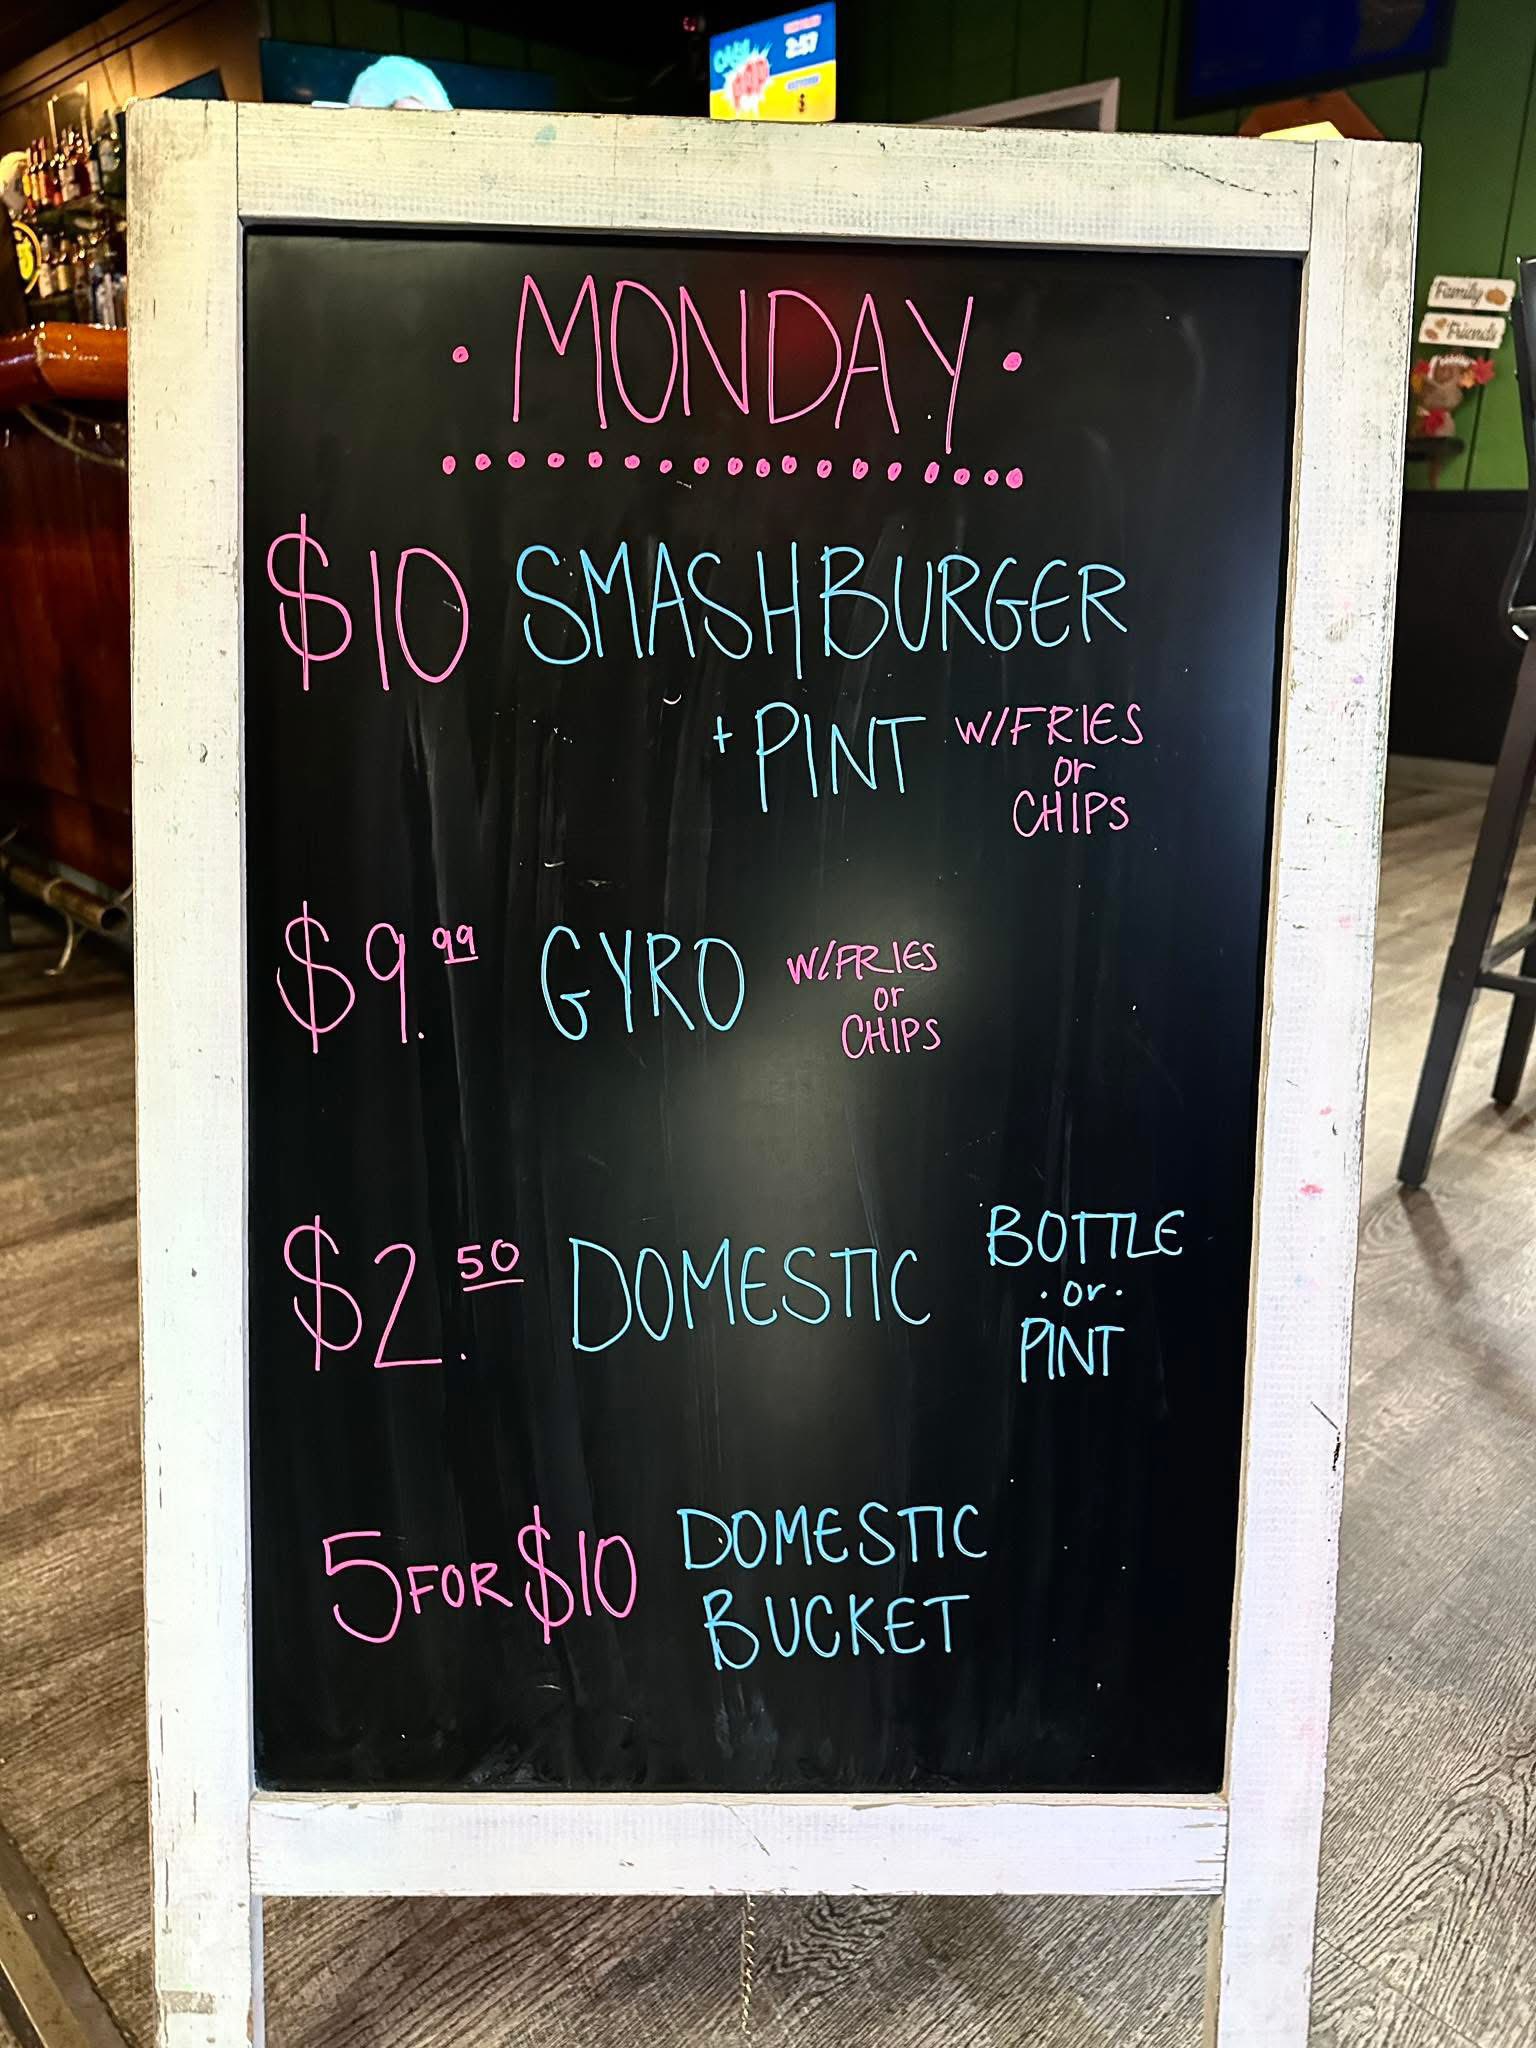 CASH
POP
2:57
$
Family
Friends
• MONDAY •
$10 SMASHBURGER
+ PINT W/FRIES
or
CHIPS
$9.99 GYRO W/FRIES
or
CHIPS
$2.50 DOMESTIC BOTTLE
• or •
PINT
5 FOR $10 DOMESTIC
BUCKET